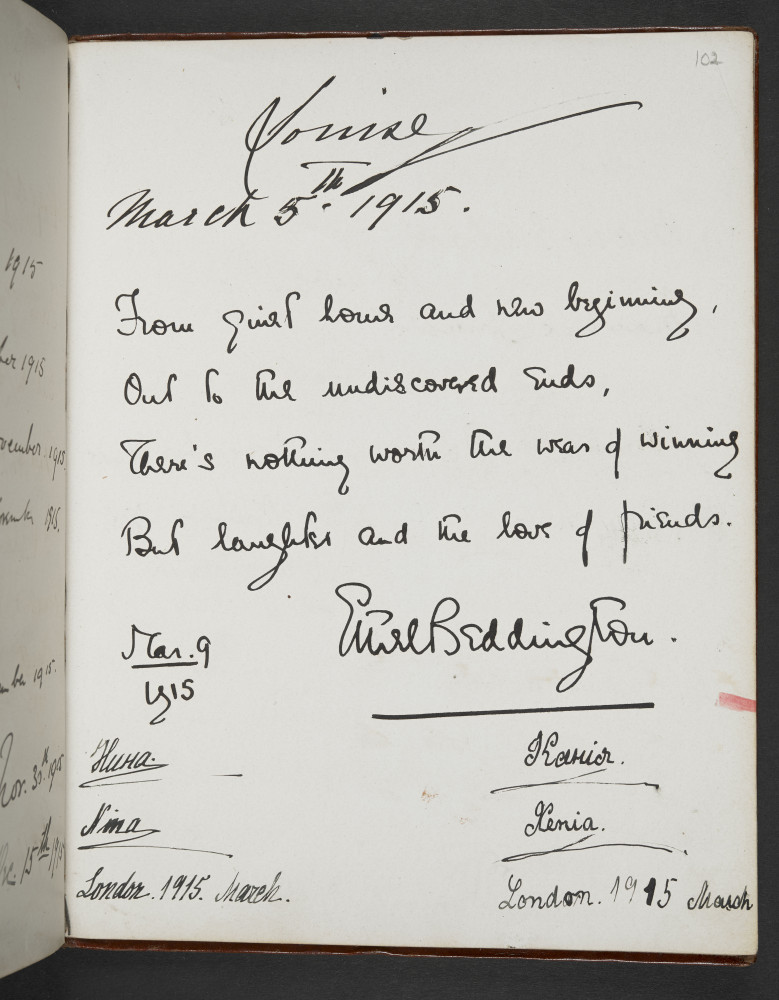 102
Louise
March 5th. 1915.
From quiet homes and new beginning,
Out to the undiscovered ends,
There's nothing worth the wear of winning
But laughter and the love of friends.
Ethel Beddington.
Mar. 9
1915
Нина.
Ксения.
Nina
Xenia.
London. 1915. March.
London. 1915 March
1915
ber 1915
vember. 1915
1915.
ber 1915.
Nov. 30th 1915
15th 1915